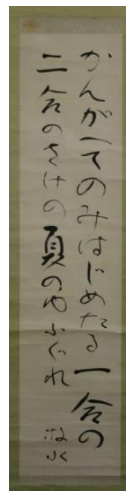 かんがへてのみはじめたる一合の
二合のさけの夏のゆふぐれ
牧水